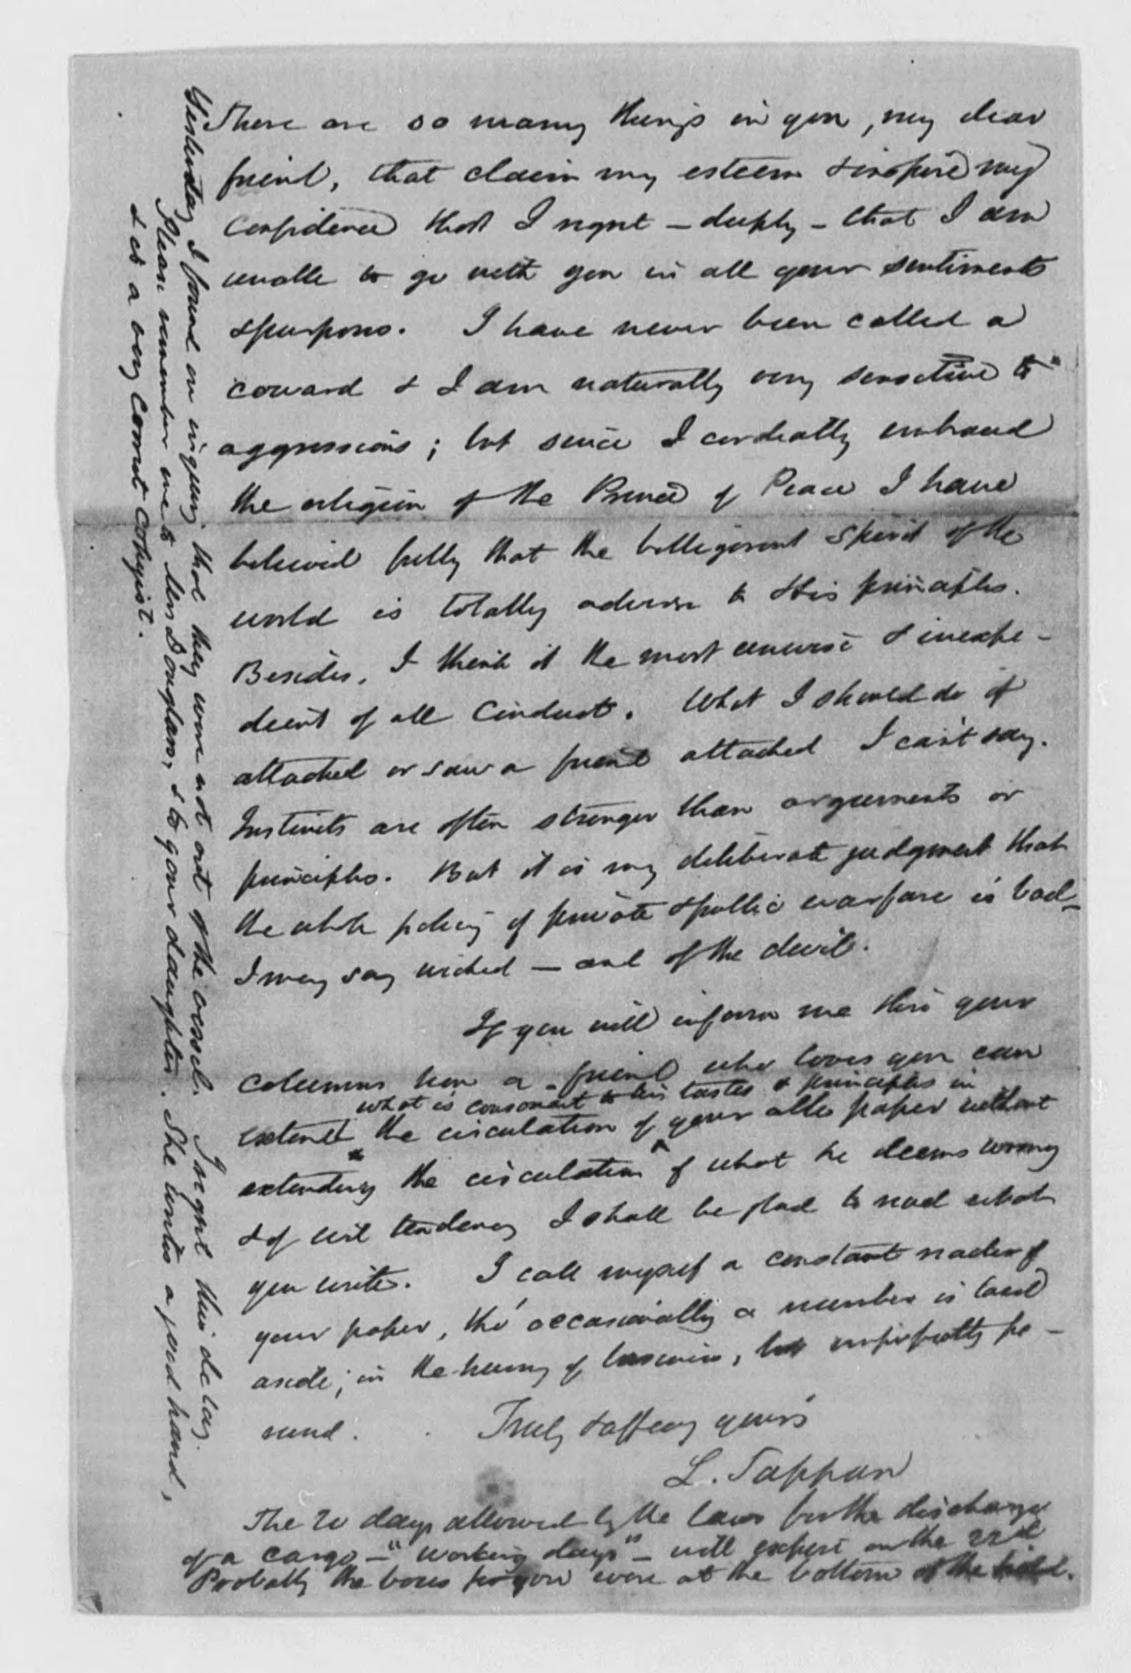 There are so many things in you, my dear
friend, that claim my esteem & inspire my
confidence that I regret – deeply – that I am
unable to go with you in all your sentiments
& purposes. I have never been called a
coward & I am naturally very sensitive to
aggressions; but since I cordially embraced
the religion of the Prince of Peace I have
believed fully that the belligerent spirit of the
world is totally adverse to His principles.
Besides, I think it the most unwise & inexpe-
dient of all conduct. What I should do if
attacked or saw a friend attacked I can't say.
Instincts are often stronger than arguments or
principles. But it is my deliberate judgment that
the whole policy of private & public warfare is bad –
I may say wicked – and of the devil.
If you will inform me thro' your
columns how a friend who loves you can
what is consonant to his tastes & principles in
extend the circulation of your able paper without
extending the circulation of what he deems wrong
& of evil tendency I shall be glad to read what
you write. I call myself a constant reader of
your paper, tho' occasionally a number is laid
aside, in the hurry of business, but imperfectly pe-
rused. Truly & affecy yours
L. Tappan
The 20 days allowed by the laws for the discharge
of a cargo – "working days" – will expire on the 22d
Probably the boxes for you were at the bottom of the hold.
Yesterday I found on inquiry that they were not out of the vessel. I regret this delay.
Please remember me to Mrs Douglass, & to your daughter. She writes a good hand,
& is a very correct copyist.